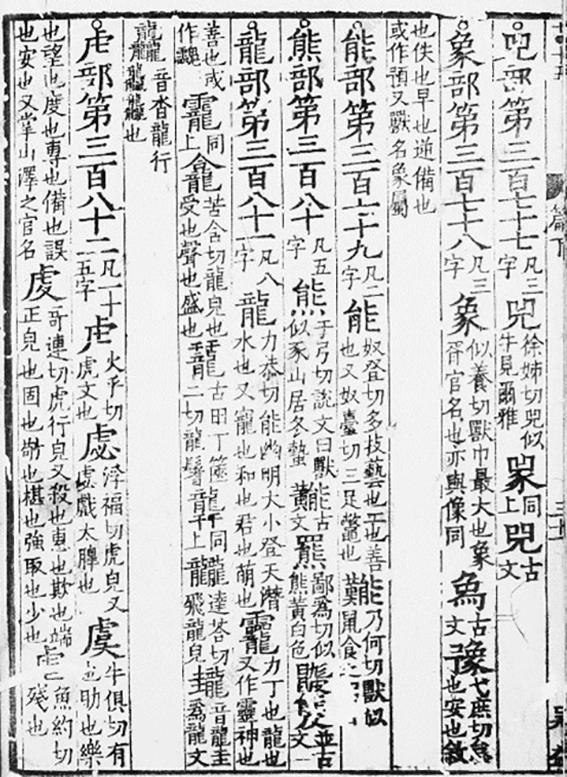 兕部第三百七十七凡三字兕徐姊切兕似牛見爾雅同上兕古文
象部第三百七十八凡三字象似養切獸中最大也象胥官名也亦與像同古文豫弋庶切怠也安也敘
也佚也早也逆備也或作預又獸名象屬
能部第三百七十九凡二字能奴登切多技藝也工也善也又奴臺切三足鼈也乃何切獸似鼠食之
熊部第三百八十凡五字熊于弓切說文曰獸似豕山居冬蟄古文羆鄙爲切似熊黃白色並古文
龍部第三百八十一凡八字龍力恭切能幽明大小登天潛水也又寵也和也君也萌也力丁也龍也又作靈神也
善也或作同上龕苦含切龍皃也受也聲也盛也古田丁篋二切龍鬐同上龖達荅切飛龍皃音龍圭爲龍文
龘音沓龍行龘龘也
虍部第三百八十二凡一十五字虍火乎切虎文也虙浮福切虎皃又虙戲太暤也虞牛俱切有也助也樂
也望也度也專也備也誤也安也又掌山澤之官名虔奇連切虎行皃又殺也惠也欺也端正皃也固也敬也椹也強取也少也虐魚約切殘也